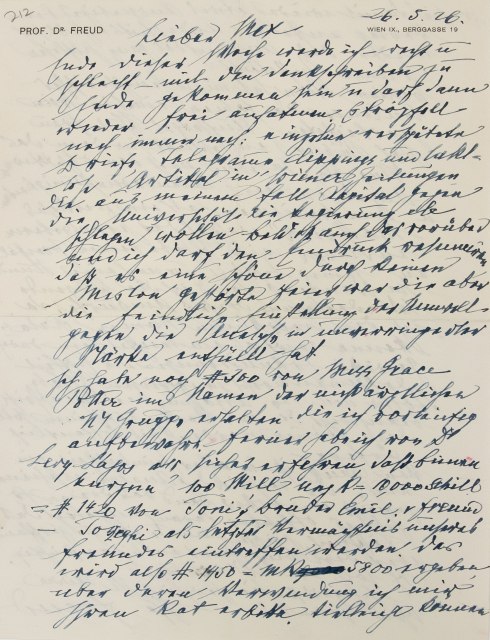 212
26. 5. 26.
PROF. DR. FREUD
WIEN IX., BERGGASSE 19
Lieber Max
Ende dieser Woche werde ich – recht u
schlecht – mit den Dankschreiben zu
Ende gekommen sein u darf dann
wieder frei aufatmen.
noch immer nach: einzelne verspätete
Briefe Telegramme Clippings und takt-
lose Artikel in Wiener Zeitungen
die aus meinem Fall Kapital gegen
die Universität die Regierung etc
schlagen wollen. Bald ist auch das vorüber
und ich darf den Eindruck resumieren
daß es eine schöne durch keinen
Misston gestörte Feier war die aber
die feindliche Einstellung der Umwelt
gegen die Analyse in unverringerter
Stärke enthüllt hat.
Ich habe noch $ 500 von Miss Grace
Potter im Namen der nichtärztlichen
NY Gruppe erhalten die ich vorläufig
aufbewahre ferner habe ich von Dr
Levy Lajos als sicher erfahren daß binnen
kurzem 100 Mill ung K = 10,000 Schill
= $ 1420 von Tonis Bruder Emil v Freund
– Toszeghi als letztes Vermächtnis unseres
Freundes eintreffen werden. Das
wird also $ = MK 5800 ergeben
über deren Verwendung ich mir
Ihren Rat erbitte. Vielleicht können